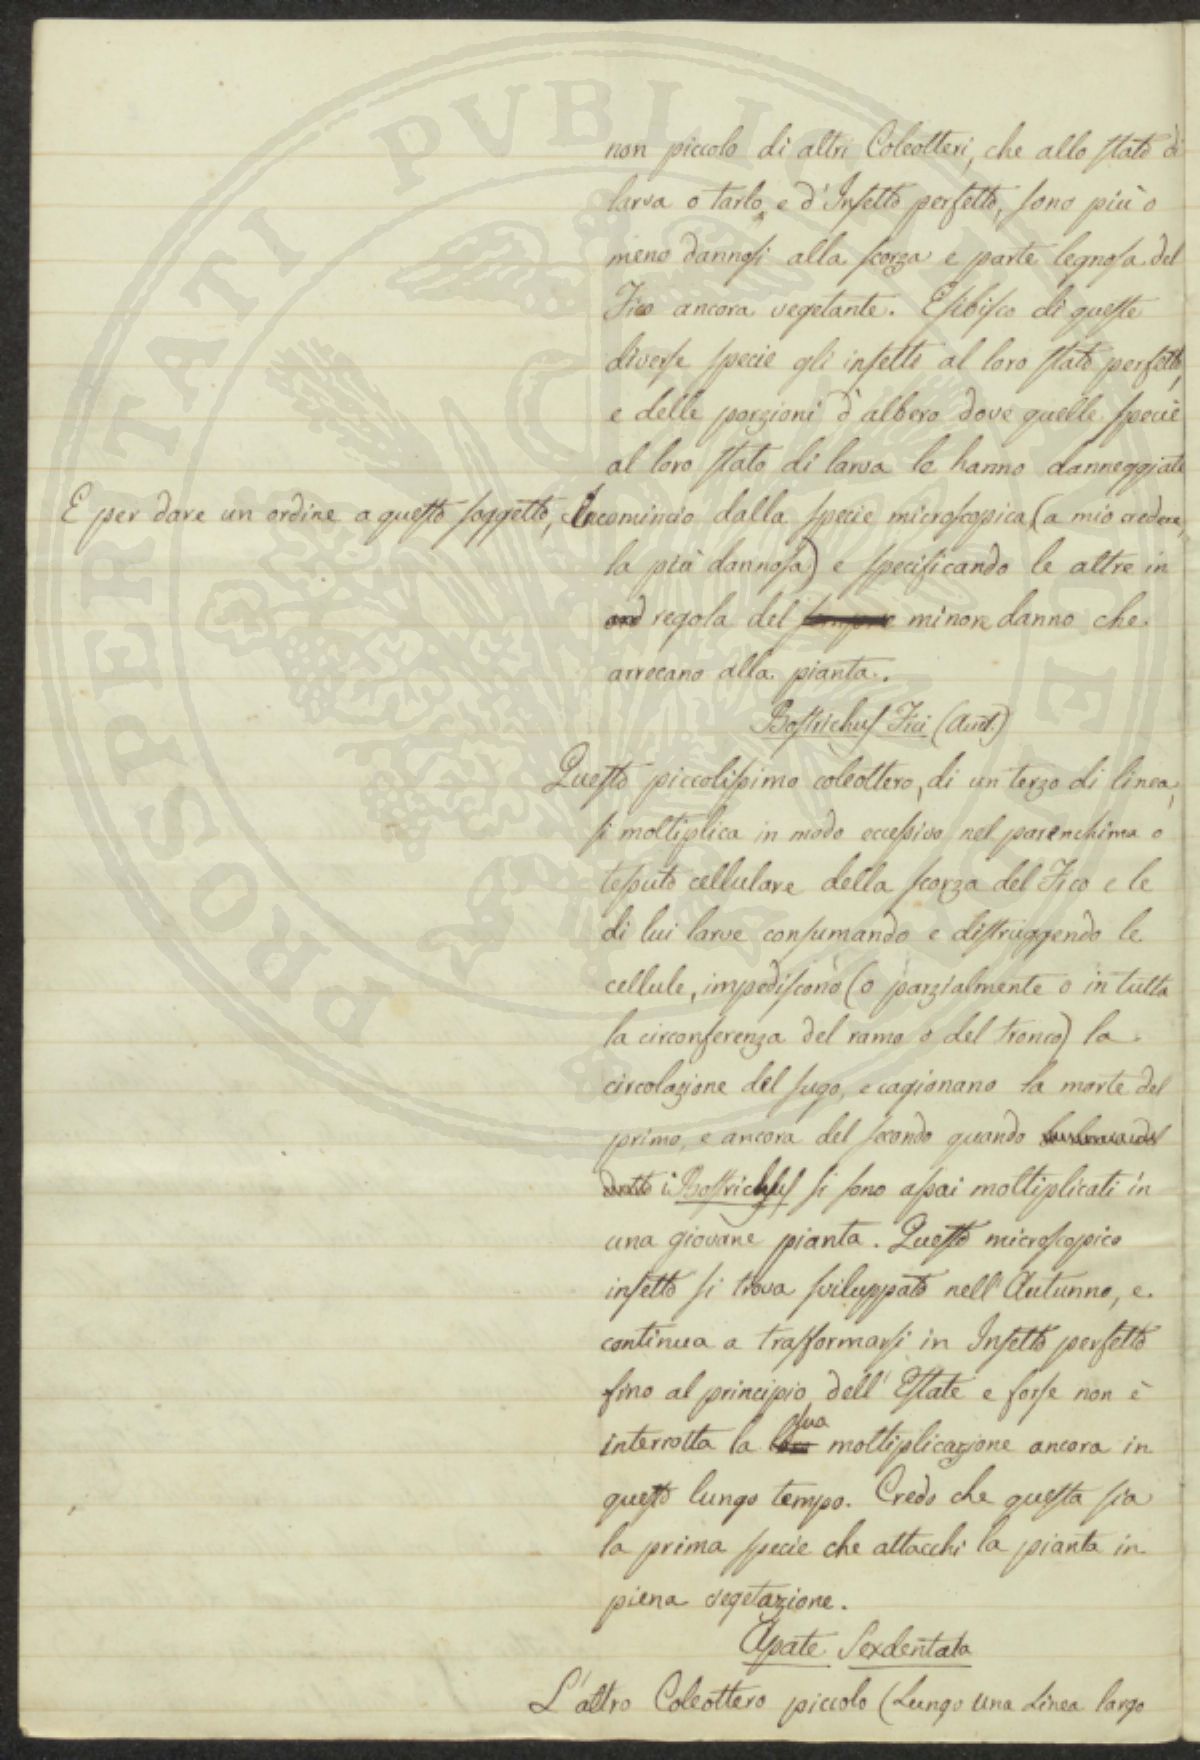 non piccolo di altri Coleotteri, che allo stato di
larva o tarlo, e d'Insetto perfetto, sono più o
meno dannosi alla scorza e parte legnosa del
Fico ancora vegetante. Esibisco di queste
diverse specie gli insetti al loro stato perfetto,
e delle porzioni d'albero dove quelle specie
al loro stato di larva le hanno danneggiate
E per dare un ordine a questo soggetto, Incomincio dalla specie microscopica, (a mio credere,
la più dannosa) e specificando le altre in
ord regola del sempre minore danno che
arrecano alla pianta.
Bostrichus Fici (Aut.)
Questo piccolissimo coleottero, di un terzo di linea,
si moltiplica in modo eccessivo nel parenchima o
tessuto cellulare della scorza del Fico e le
di lui larve consumando e distruggendo le
cellule, impediscono (o parzialmente o in tutta
la circonferenza del ramo o del tronco) la
circolazione del sugo, e cagionano la morte del
primo, e ancora del secondo quando
detto i Bostrichus si sono assai moltiplicati in
una giovane pianta. Questo microscopico
insetto si trova sviluppato nell'Autunno, e
continua a trasformarsi in Insetto perfetto
fino al principio dell'Estate e forse non è
interrotta la loro sua moltiplicazione ancora in
questo lungo tempo. Credo che questa sia
la prima specie che attacchi la pianta in
piena vegetazione.
Apate Sexdentata
L'altro Coleottero piccolo (Lungo una Linea largo
PROSPERITATI PVBLICAE AVGENDAE